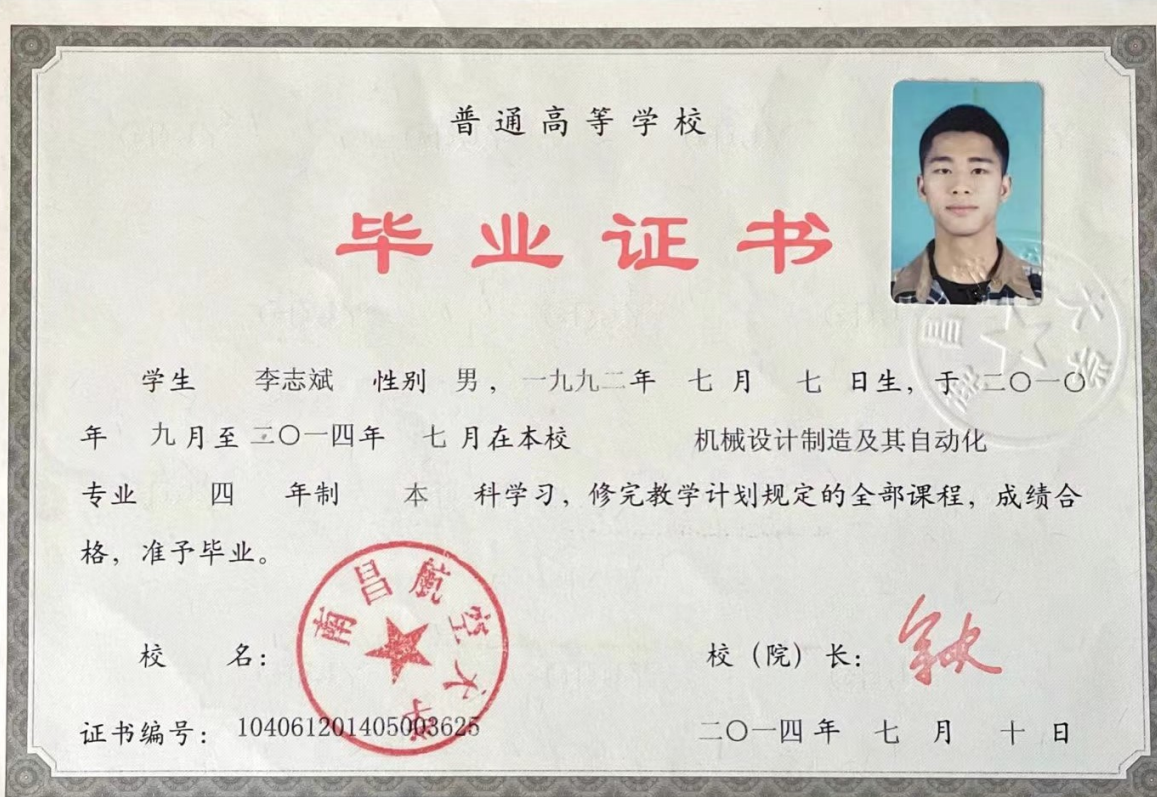 普通高等学校
毕业证书
学生 李志斌 性别 男，一九九二年 七 月 七 日生，于 二〇一〇
年 九月至 二〇一四年 七 月在本校 机械设计制造及其自动化
专业 四 年制 本 科学习，修完教学计划规定的全部课程，成绩合
格，准予毕业。
南昌航空大学
校 名： 校（院）长：
证书编号： 104061201405003625 二〇一四年 七 月 十 日